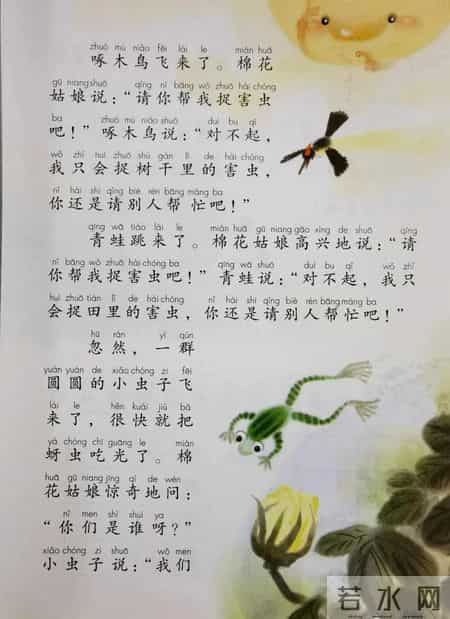 zhuó mù niǎo fēi lái le mián huā
啄木鸟飞来了。棉花
gū niang shuō qǐng nǐ bāng wǒ zhuō hài chóng
姑娘说：“请你帮我捉害虫
ba zhuó mù niǎo shuō duì bu qǐ
吧！”啄木鸟说：“对不起，
wǒ zhǐ huì zhuō shù gàn lǐ de hài chóng
我只会捉树干里的害虫，
nǐ hái shi qǐng bié rén bāng máng ba
你还是请别人帮忙吧！”
qīng wā tiào lái le mián huā gū niang gāo xìng de shuō qǐng
青蛙跳来了。棉花姑娘高兴地说：“请
nǐ bāng wǒ zhuō hài chóng ba qīng wā shuō duì bu qǐ wǒ zhǐ
你帮我捉害虫吧！”青蛙说：“对不起，我只
huì zhuō tián lǐ de hài chóng nǐ hái shi qǐng bié rén bāng máng ba
会捉田里的害虫，你还是请别人帮忙吧！”
hū rán yì qún
忽然，一群
yuán yuán de xiǎo chóng zi fēi
圆圆的小虫子飞
lái le hěn kuài jiù bǎ
来了，很快就把
yá chóng chī guāng le mián
蚜虫吃光了。棉
huā gū niang jīng qí de wèn
花姑娘惊奇地问：
nǐ men shì shuí ya
“你们是谁呀？”
xiǎo chóng zi shuō wǒ men
小虫子说：“我们
若水网